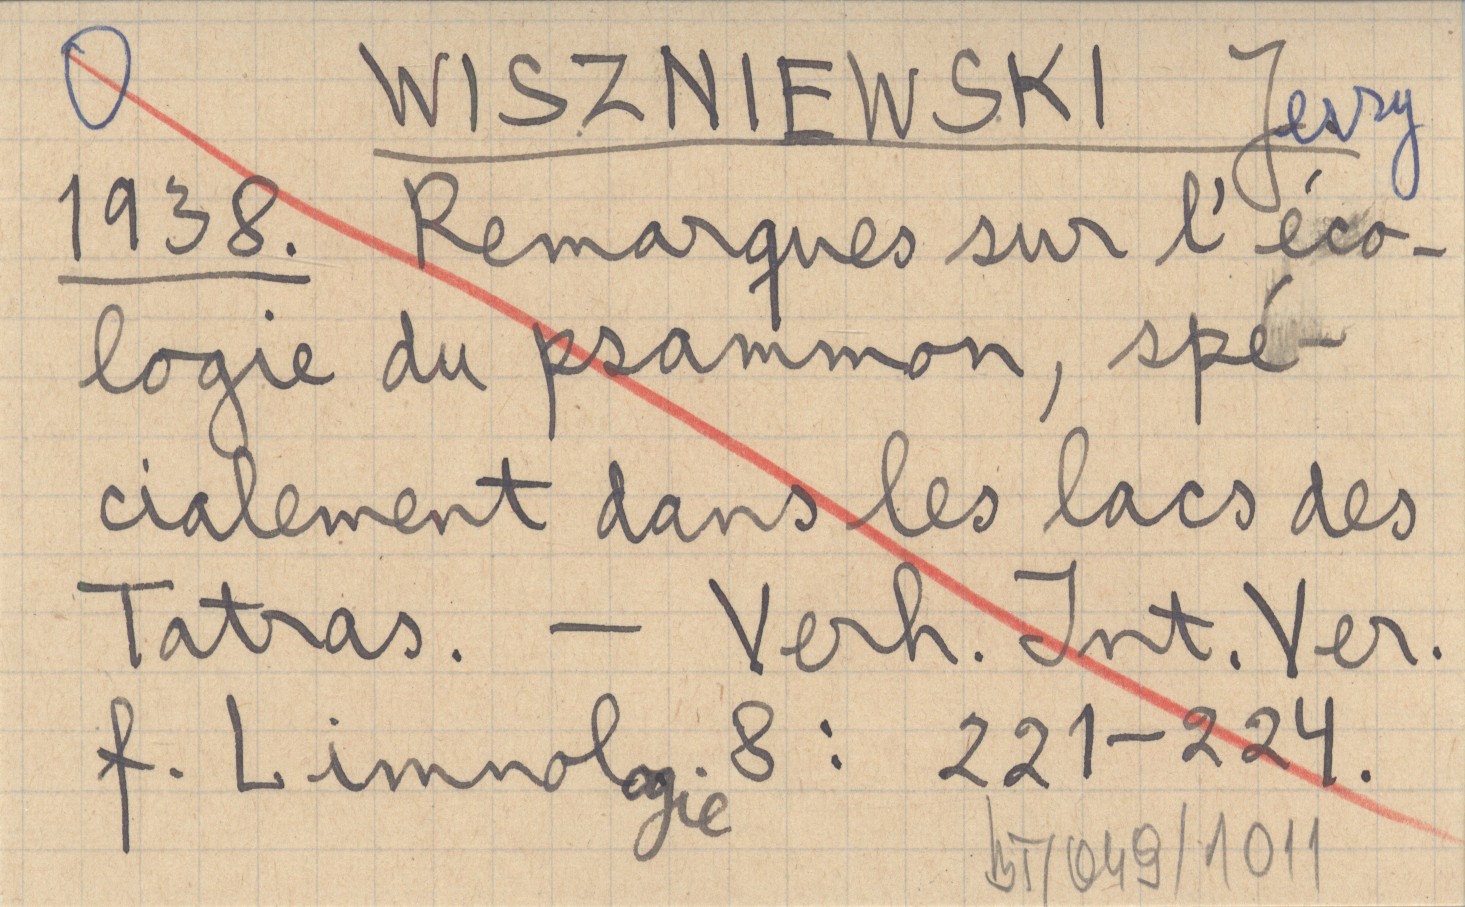 WISZNIEWSKI Jerzy
1938. Remarques sur l'éco-
logie du psammon, spé-
cialement dans les lacs des
Tatras. — Verh. Int. Ver.
f. Limnologie 8: 221-224.
BT/049/1011